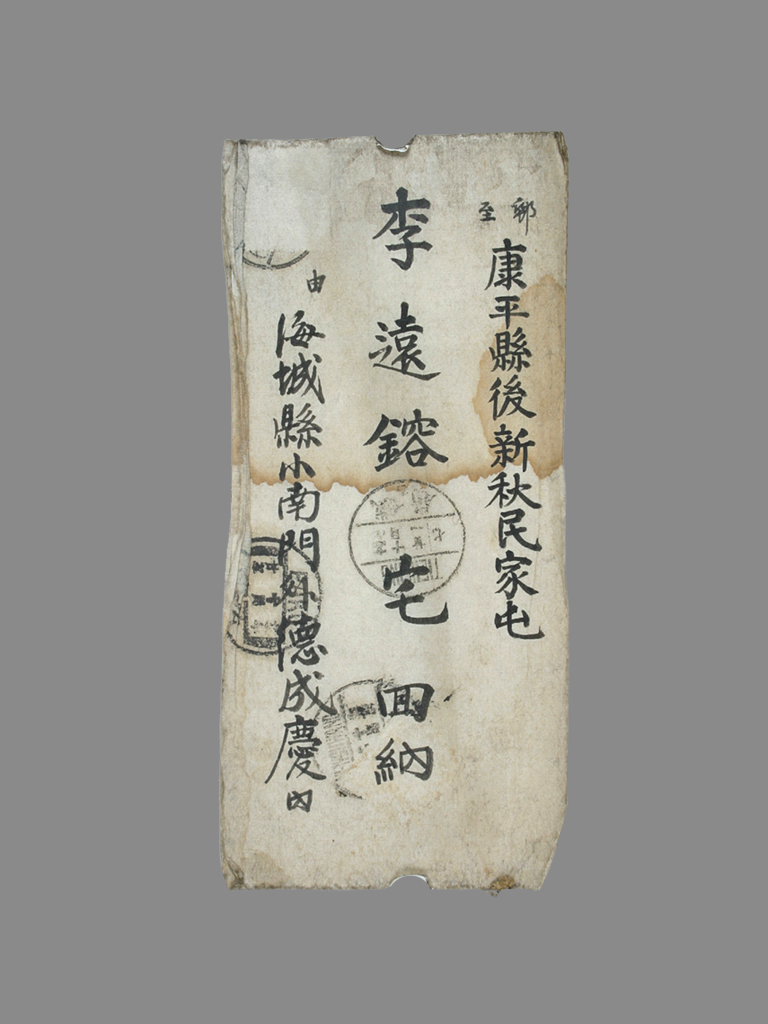 郵至
康平縣後新秋民家屯
李遠鎔宅回納
由
海城縣小南門外德成慶內